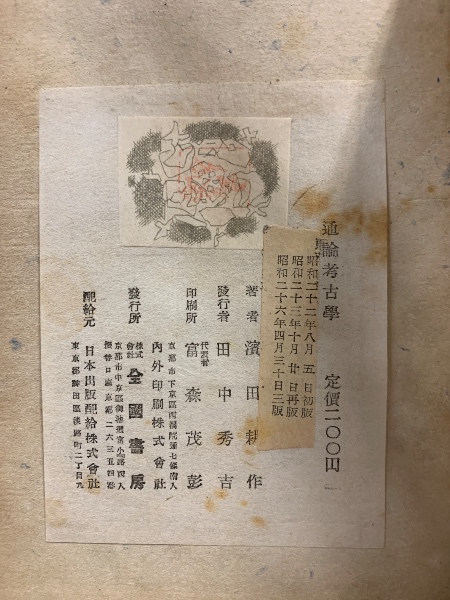 通論考古學　定價二〇〇円
昭和二十二年八月　五日初版
昭和二十三年十月　廿日再版
昭和二十六年四月三十日三版
著者　濱田耕作
發行者　田中秀吉
印刷所　代表者　富森茂彭
京都市下京區西洞院通七條南入
內外印刷株式會社
發行所　株式會社　全國書房
京都市中京區御池通富小路西入
振替口座京都二六三五四番
配給元　日本出版配給株式會社
東京都神田區淡路町二丁目九